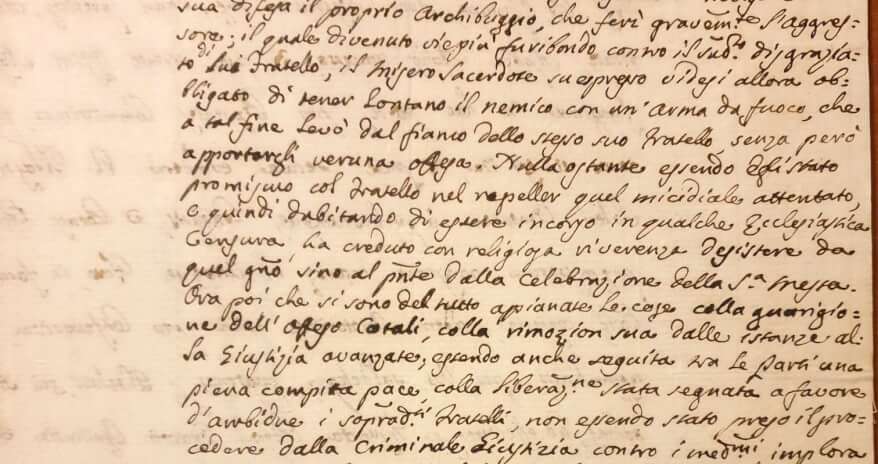 sua difesa il proprio Archibuggio, che ferì gravem.te l'aggres=
sore; il quale divenuto vie più furibondo contro il sud.to disgrazia=
to di lui Fratello, il misero Sacerdote su espresso videsi allora ob=
bligato di tener lontano il nemico con un' arma da fuoco, che
a tal fine levò dal fianco dello stesso suo Fratello, senza però
apportargli veruna offesa. Nulla ostante essendo Egli stato
promiscuo col Fratello nel repeller quel micidiale attentato,
e quindi dubitando di essere incorso in qualche Ecclesiastica
Censura, ha creduto con religiosa riverenza desistere da
quel gno sino al pnte dalla Celebrazione della S.a Messa.
Ora poi che si sono del tutto appianate le cose colla guarigio=
ne dell' offeso Cotali, colla rimozion sua dalle istanze al=
la Giustizia avanzate; essendo anche seguita tra le Parti una
piena compita pace, colla liberaz.ne stata segnata a favore
d'ambidue i soprad.ti Fratelli, non essendo stato preso il pro=
cedere dalla Criminale Giustizia contro i med.mi implora